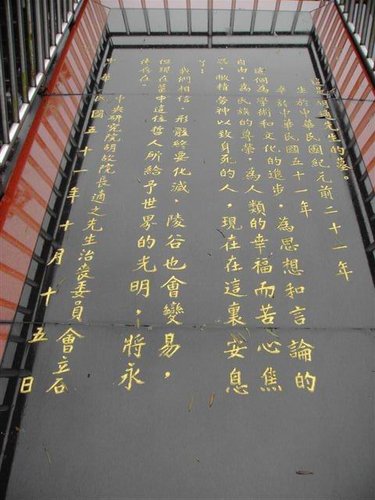 這是胡適先生的墓。
生於中華民國紀元前二十一年
卒於中華民國五十一年
這個為學術和文化的進步,為思想和言論的
自由,為民族的尊榮,為人類的幸福而苦心焦
慮,敝精勞神以致身死的人,現在在這裏安息
了!
我們相信,形骸終要化滅,陵谷也會變易,
但現在墓中這位哲人所給予世界的光明,將永
遠存在。
中央研究院胡故院長適之先生治喪委員會立石
中華民國五十一年十月十五日